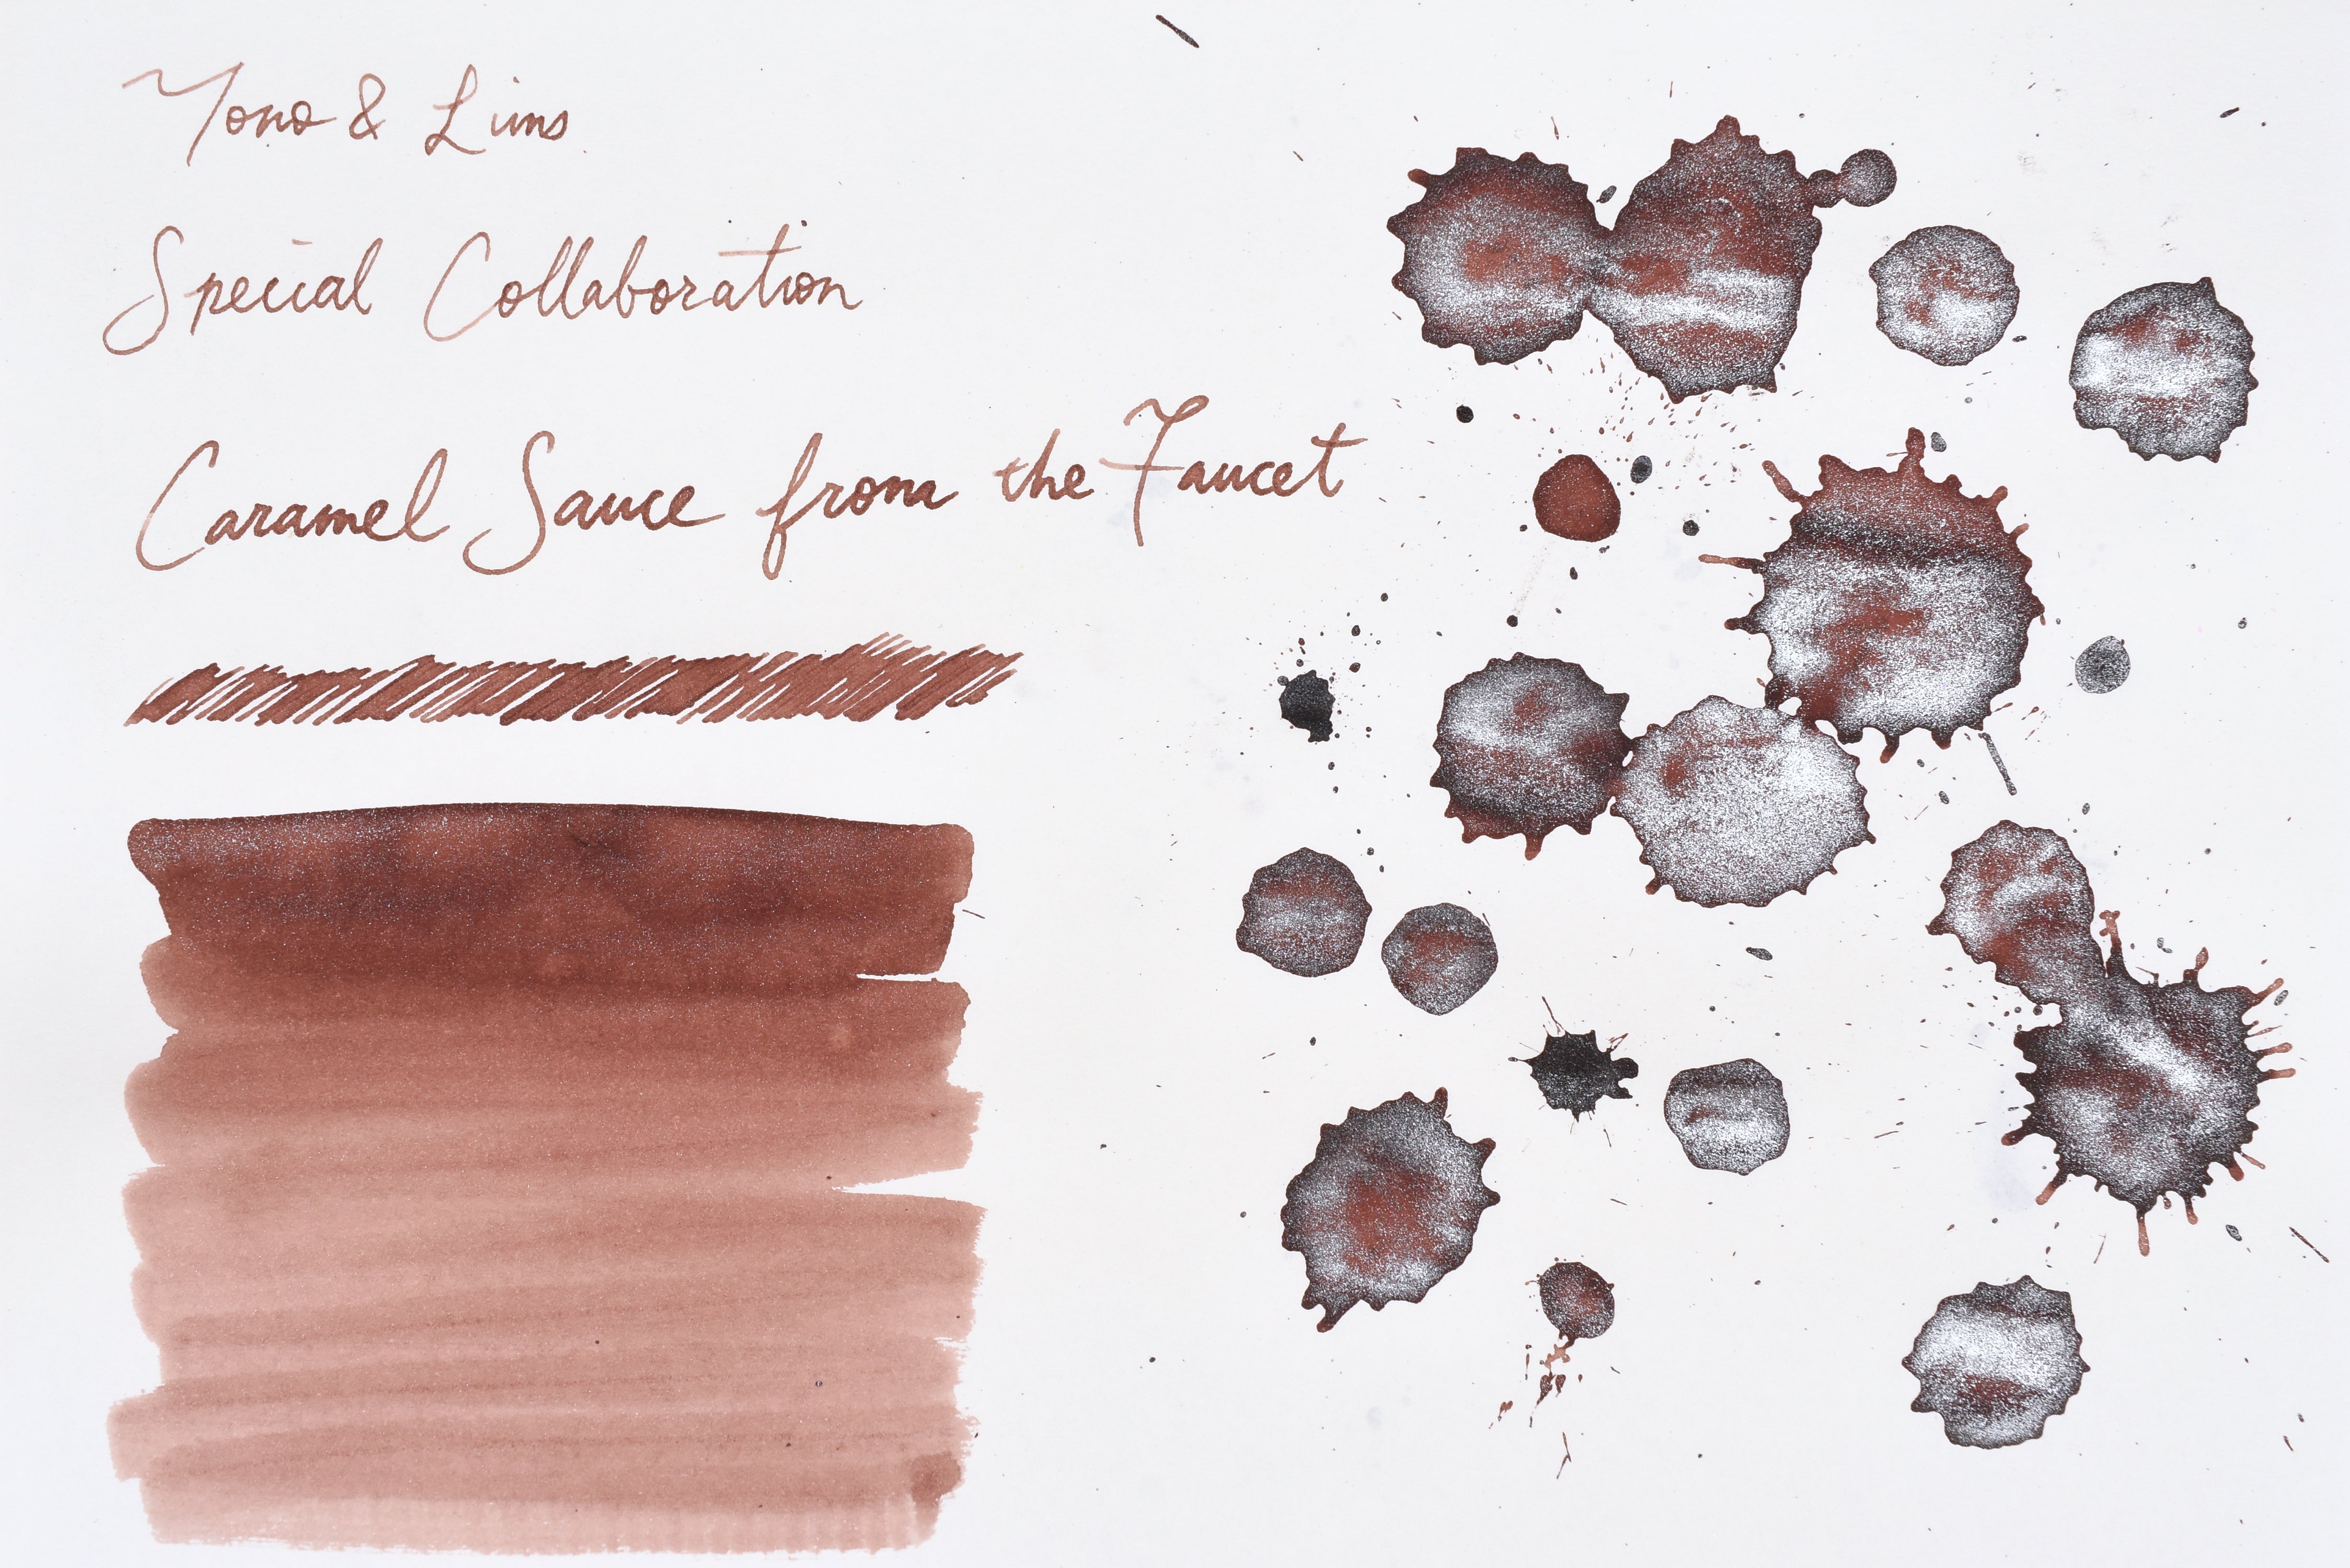 Tono & Lims
Special Collaboration
Caramel Sauce from the Faucet